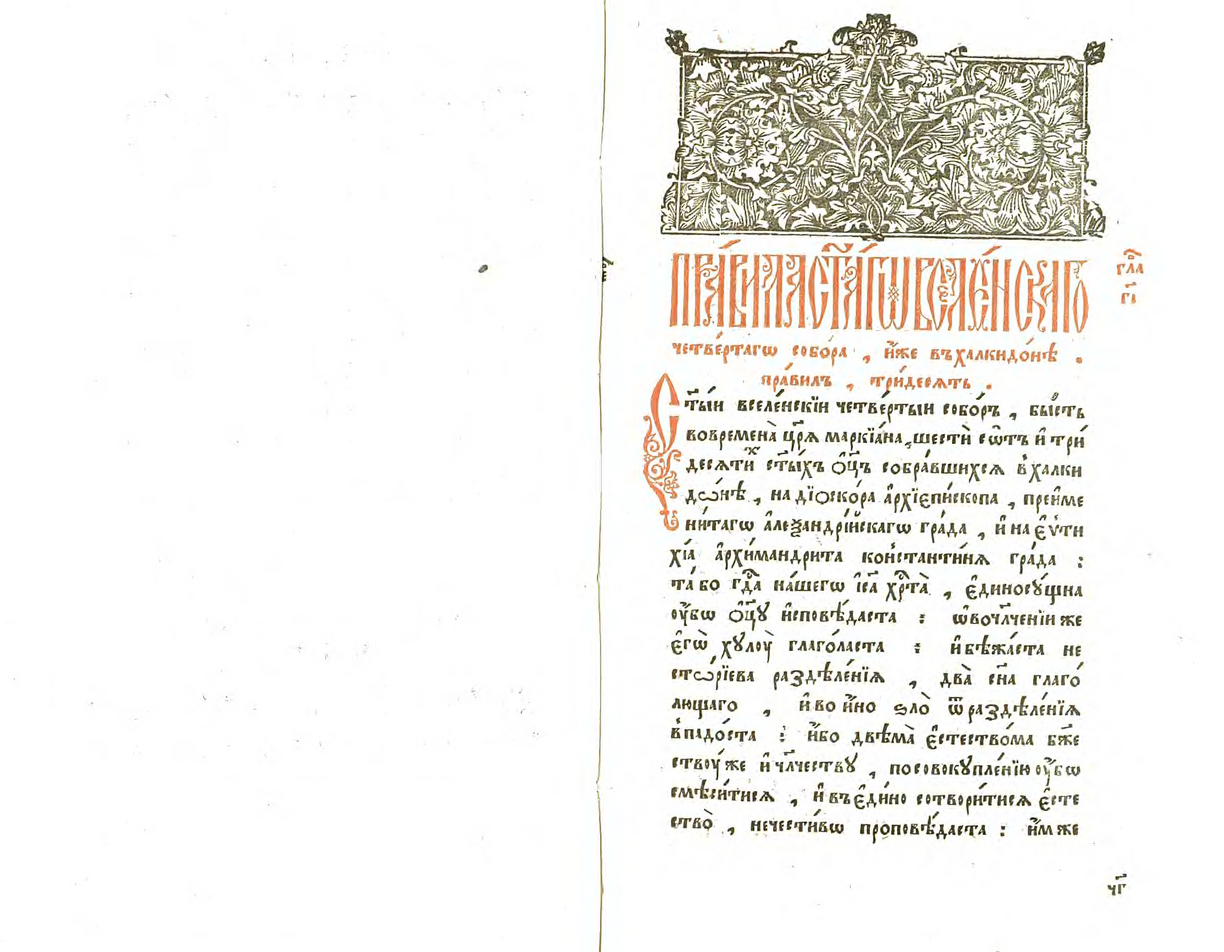 пра́вила ст҃а́гѡ вселе́нскагѡ
гла̀
г҃і
четве́ртагѡ собо́ра , и҆́же въ халкидо́нѣ .
пра́вилъ , три́десять .
Ст҃ы́и вселе́нскїи четве́ртыи собо́ръ , бы́сть
во времена̀ цр҃ѧ̀ маркїа́на , шестѝ сѡ́тъ и҆ три́
десѧти ст҃ы́хъ ѻ҆ц҃ъ собра́вшихсѧ в халки
дѡ́нѣ , на дїѻско́ра а҆рхїепи́скопа , преиме
ни́тагѡ а҆леѯандрі́йскагѡ гра́да , и҆ на є҆ѵти
хі́а а҆рхимандри́та константи́нѧ гра́да :
та́ бо гд҇а на́шегѡ і҆с҃а хр҇та̀ , є҆диносꙋ́щна
ѹ҆́бѡ ѻ҆ц҃ꙋ и҆сповѣ́даста : ѡ вочл҃че́нїи же
є҆гѡ̀ хꙋлоу̀ глаго́ласта : и҆ бѣжа́ста не
стѡ́рїева раздѣле́нїѧ , два̀ сн҃а глаго́
лющаго , и҆ во и҆́но ѕло̀ ѿ раздѣле́нїѧ
впадо́ста : и҆́бо двѣма̀ є҆стество́ма бж҃е
ствоу́ же и҆ чл҃честву̀ , по совокꙋпле́нїю ѹ҆́бѡ
смѣси́тисѧ , и҆ въ є҆ди́но сотвори́тисѧ є҆сте
ство̀ , нечести́вѡ проповѣ́даста : и҆́мже
чг҃